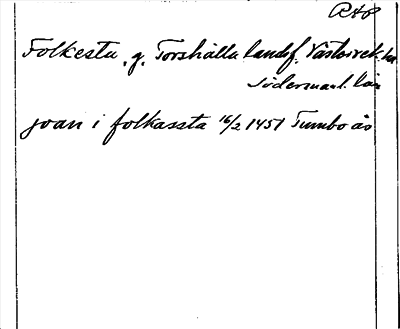 RAP
Folkesta, g. Torshälla landsf. Västerrek. hd
Södermanl. län
joan i folkassta 16/2 1451 Tumbo äs